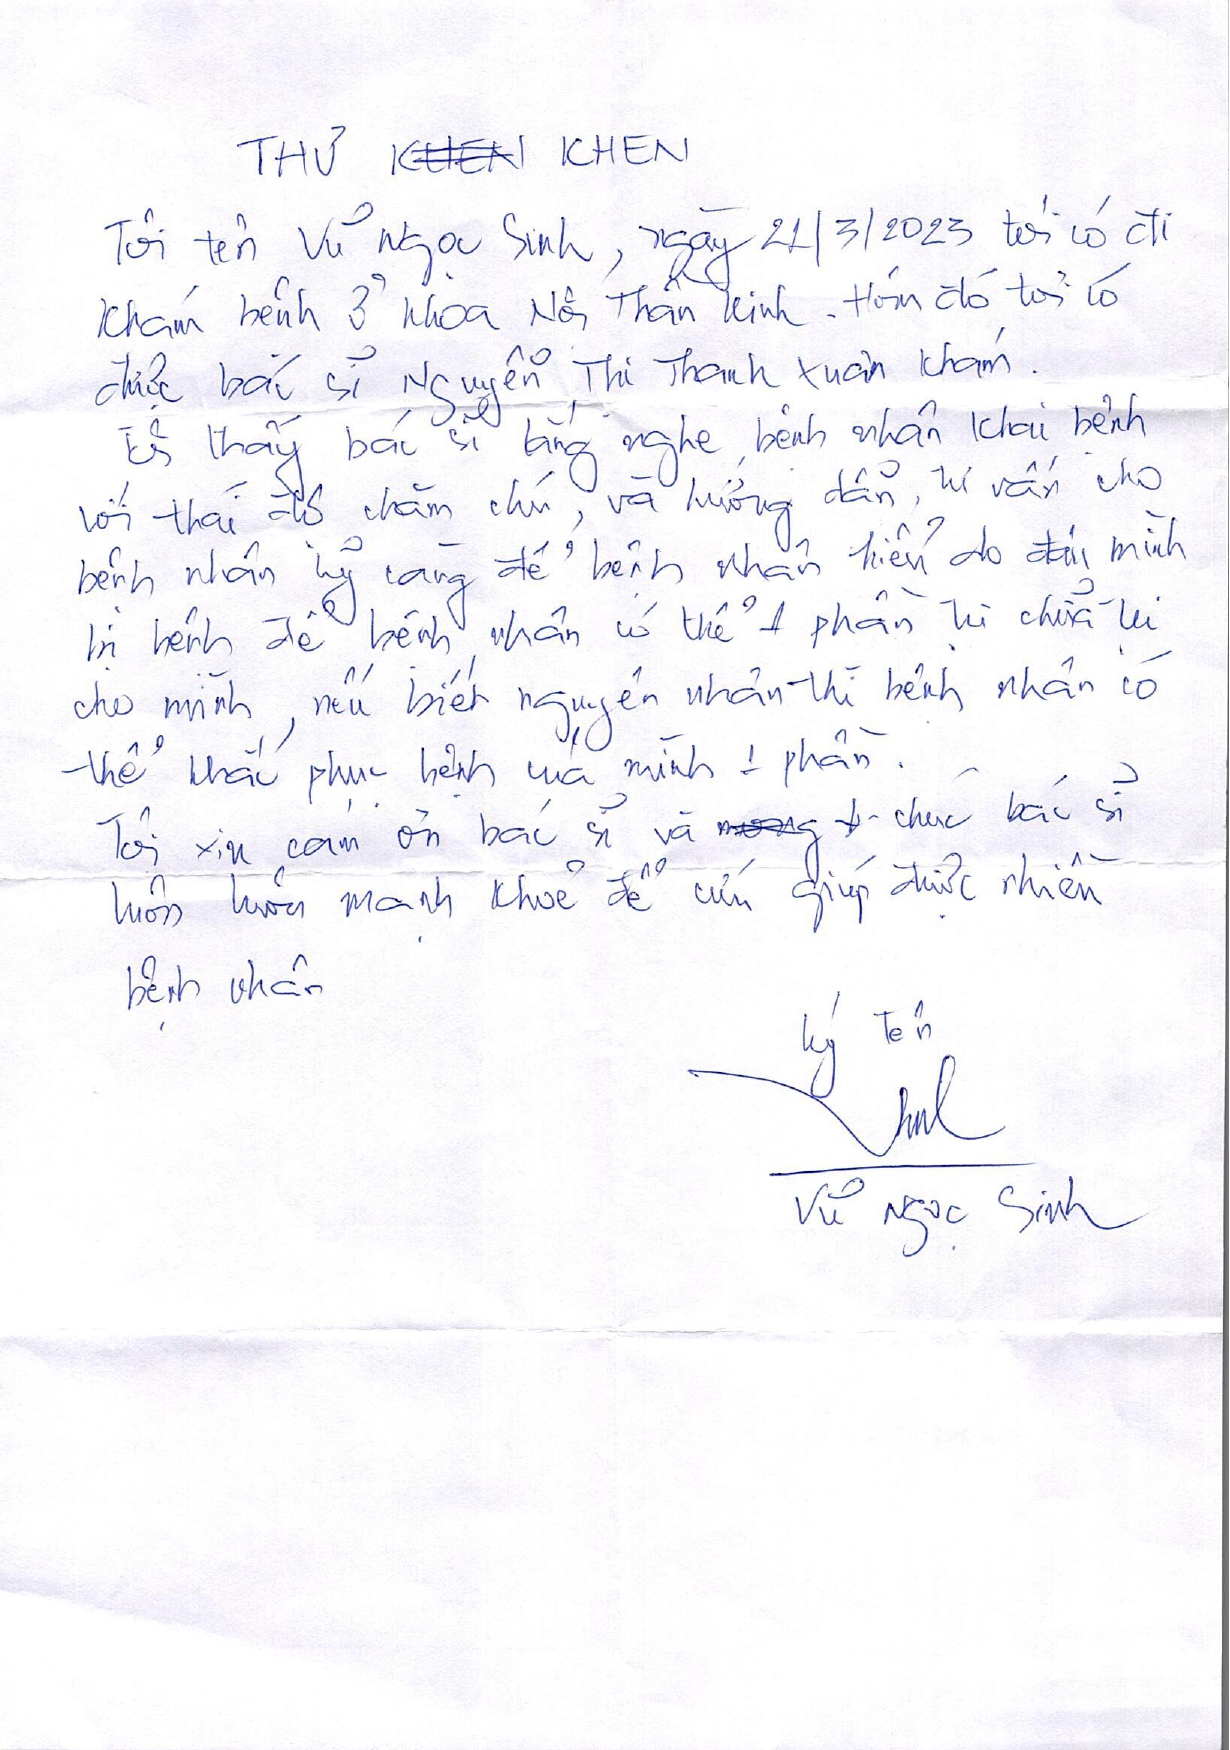 THƯ KHEN KHEN
Tôi tên Vũ Ngọc Sinh, ngày 21/3/2023 tôi có đi
khám bệnh ở khoa Nội Thần kinh. Hôm đó tôi có
được bác sĩ Nguyễn Thị Thanh Xuân khám.
Tôi thấy bác sĩ lắng nghe bệnh nhân khai bệnh
với thái độ chăm chú, và hướng dẫn, tư vấn cho
bệnh nhân kỹ càng để bệnh nhân hiểu do đâu mình
bị bệnh để bệnh nhân có thể 1 phần tự chữa trị
cho mình, nếu biết nguyên nhân thì bệnh nhân có
thể khắc phục bệnh của mình 1 phần.
Tôi xin cám ơn bác sĩ và chúc bác sĩ
luôn luôn mạnh khoẻ để cứu giúp được nhiều
bệnh nhân
ký tên
Vũ Ngọc Sinh